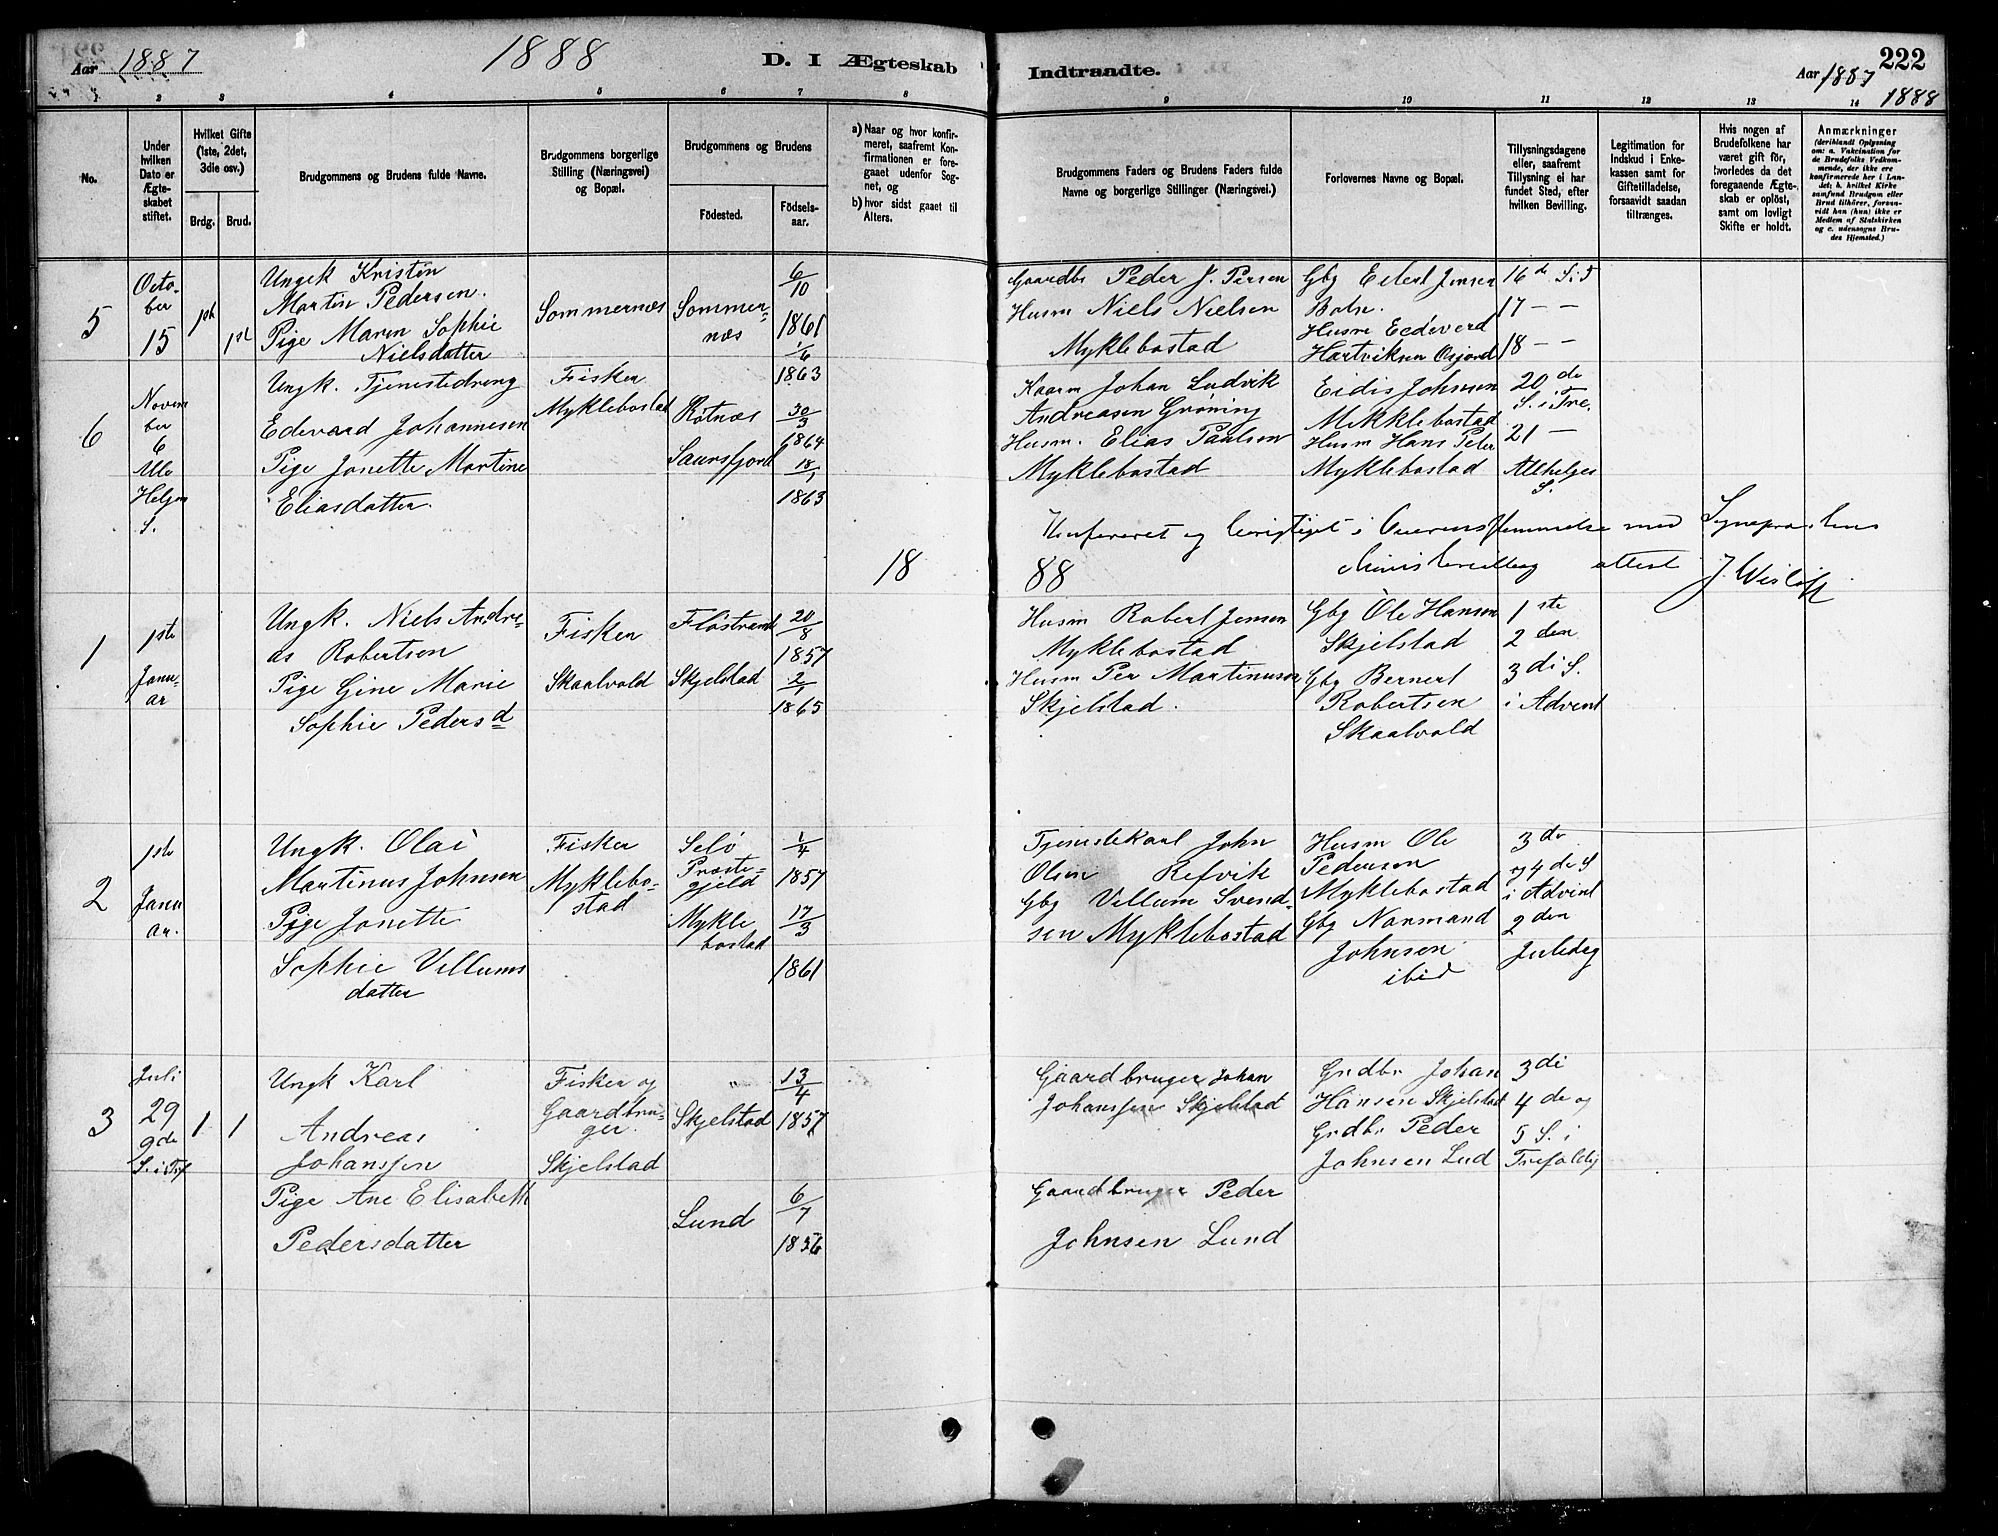 Aar 1887
1888
D. I Ægteskab
Indtraadte.
Aar 1887
222
1888
1 2 3 4 5 6 7 8 9 10 11 12 13 14
No.
Under hvilken Dato er Ægteskabet stiftet.
Hvilket Gifte (1ste, 2det, 3die osv.)
Brdg. Brud.
Brudgommens og Brudens fulde Navne.
Brudgommens borgerlige Stilling (Næringsvei) og Bopæl.
Brudgommens og Brudens
Fødested.
Fødselsaar.
a) Naar og hvor konfirmeret, saafremt Konfirmationen er foregaaet udenfor Sognet, og
b) hvor sidst gaaet til Alters.
Brudgommens Faders og Brudens Faders fulde Navne og borgerlige Stillinger (Næringsvei.)
Forlovernes Navne og Bopæl.
Tillysningsdagene eller, saafremt Tillysning ei har fundet Sted, efter hvilken Bevilling.
Legitimation for Indskud i Enkekassen samt for Giftetilladelse, forsaavidt saadan tiltrænges.
Hvis nogen af Brudefolkene har været gift før, hvorledes da det foregaaende Ægteskab er opløst, samt om lovligt Skifte er holdt.
Anmærkninger (deriblandt Oplysning om: a. Vakcination for de Brudefolks Vedkommende, der ikke ere konfirmerede her i Landet; b. hvilket Kirkesamfund Brudgom eller Brud tilhører, forsaavidt han (hun) ikke er Medlem af Statskirken og c. udensogns Brudes Hjemsted.)
5
October
15
1st
1st
Ungk Kristen
Martin Pedersen.
Pige Maren Sophie
Nielsdatter
Sommernæs
Sommernæs
6/10
1861
1/6
1863
Gaardbr Peder J. Persen
Husm Niels Nielsen
Myklebostad
Gbg Eilert Jensen
Botn.
Husm Eedeverd
Hartviksen Osjord
16de S. i 5
17 — —
18 — —
6
November
6
Alle
Helgens
S.
Ungk. Tjenestedreng
Edevard Johannesen
Pige Jonette Martine
Eliasdatter.
Fisker
Myklebostad
Røtnæs
Saursfjord
30/3
1864
18/1
1863
Kaarm Johan Ludvik
Andreasen Grøning
Husm. Elias Paulsen
Myklebostad
Eidis Johnsen
Mikklebostad
Husm Hans Peter
Myklebostad
20de
S. i Tre.
21 —
Allhelges
S.
Konfereret og berigtiget i Overensstemmelse med Sogneprestens
Ministerialbog attest J. Wisløff
18
88
1
1ste
Januar
Ungk. Niels Andreas
Robertsen
Pige Gine Marie
Sophie Pedersd
Fisker
Skaalvold
Fløstrand
Skjelstad
20/8
1857
2/1
1865
Husm Robert Jensen
Myklebostad
Husm Per Martinusen
Skjelstad.
Gbg Ole Hansen
Skjelstad
Gbg Bernert
Robertsen
Skaalvold
1ste
2den
3di S.
i Advent
2
1ste
Januar.
Ungk. Olai
Martinus Johnsen
Pige Jonette
Sophie Villumsdatter
Fisker
Myklebostad
Selø
Præstegjeld
Myklebostad
1/4
1857
17/3
1861
Tjenestekarl John
Olsen Refvik
Gbg Villum Svendsen
Myklebostad
Husm Ole
Pedersen
Myklebostad
Gbg Normand
Johnsen
ibid
3de
og 4de S
i Advent
2den
Juledag
3
Juli
29
9de
S. i Tref
1 1
Ungk Karl
Andreas
Johanssen
Pige Ane Elisabeth
Pedersdatter
Fisker og
Gaardbruger.
Skjelstad
"
Skjelstad
Lund
13/4
1857
6/7
1856
Gaardbruger Johan
Johanssen Skjelstad
Gaardbruger Peder
Johnsen Lund
Grdbr Johan
Hansen Skjelstad
Grdbr Peder
Johnsen Lud
3di
4de og
5 S. i
Trefoldig